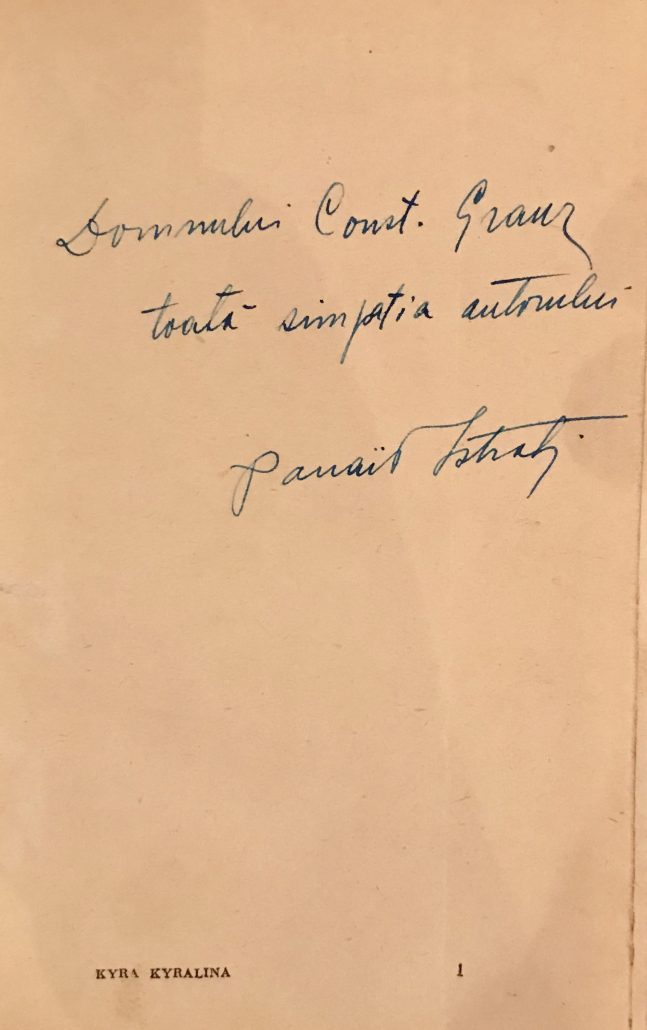 Domnului Const. Graur
toată simpatia autorului
Panaït Istrati
KYRA KYRALINA 1